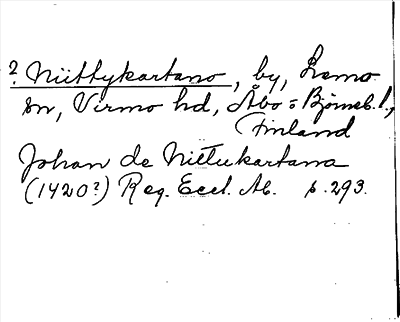 ? Niittykartano, by, Lemo
sn, Virmo hd, Åbo o Björneb. l.,
Finland
Johan de Nittukartana
(1420?) Reg. Eccl. Ab. p. 293.